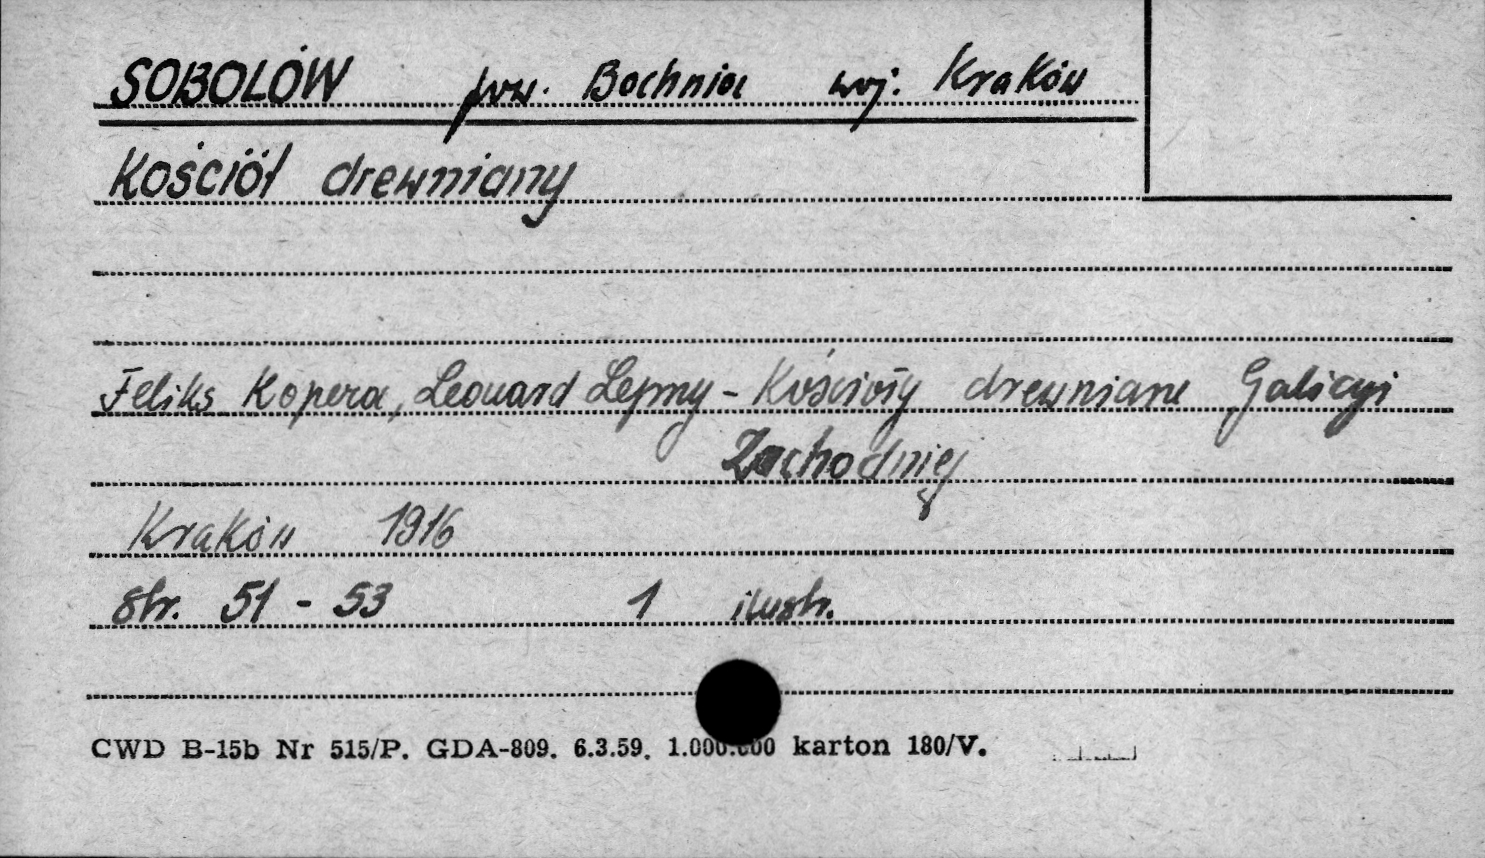 SOBOLÓW pow. Bochnia woj. Kraków
Kościół drewniany
Feliks Kopera, Leonard Lepszy - Kościoły drewniane Galicyi
Zachodniej
Kraków 1916
str. 51 - 53 1 ilustr.
CWD B-15b Nr 515/P. GDA-809. 6.3.59. 1.000.000 karton 180/V.